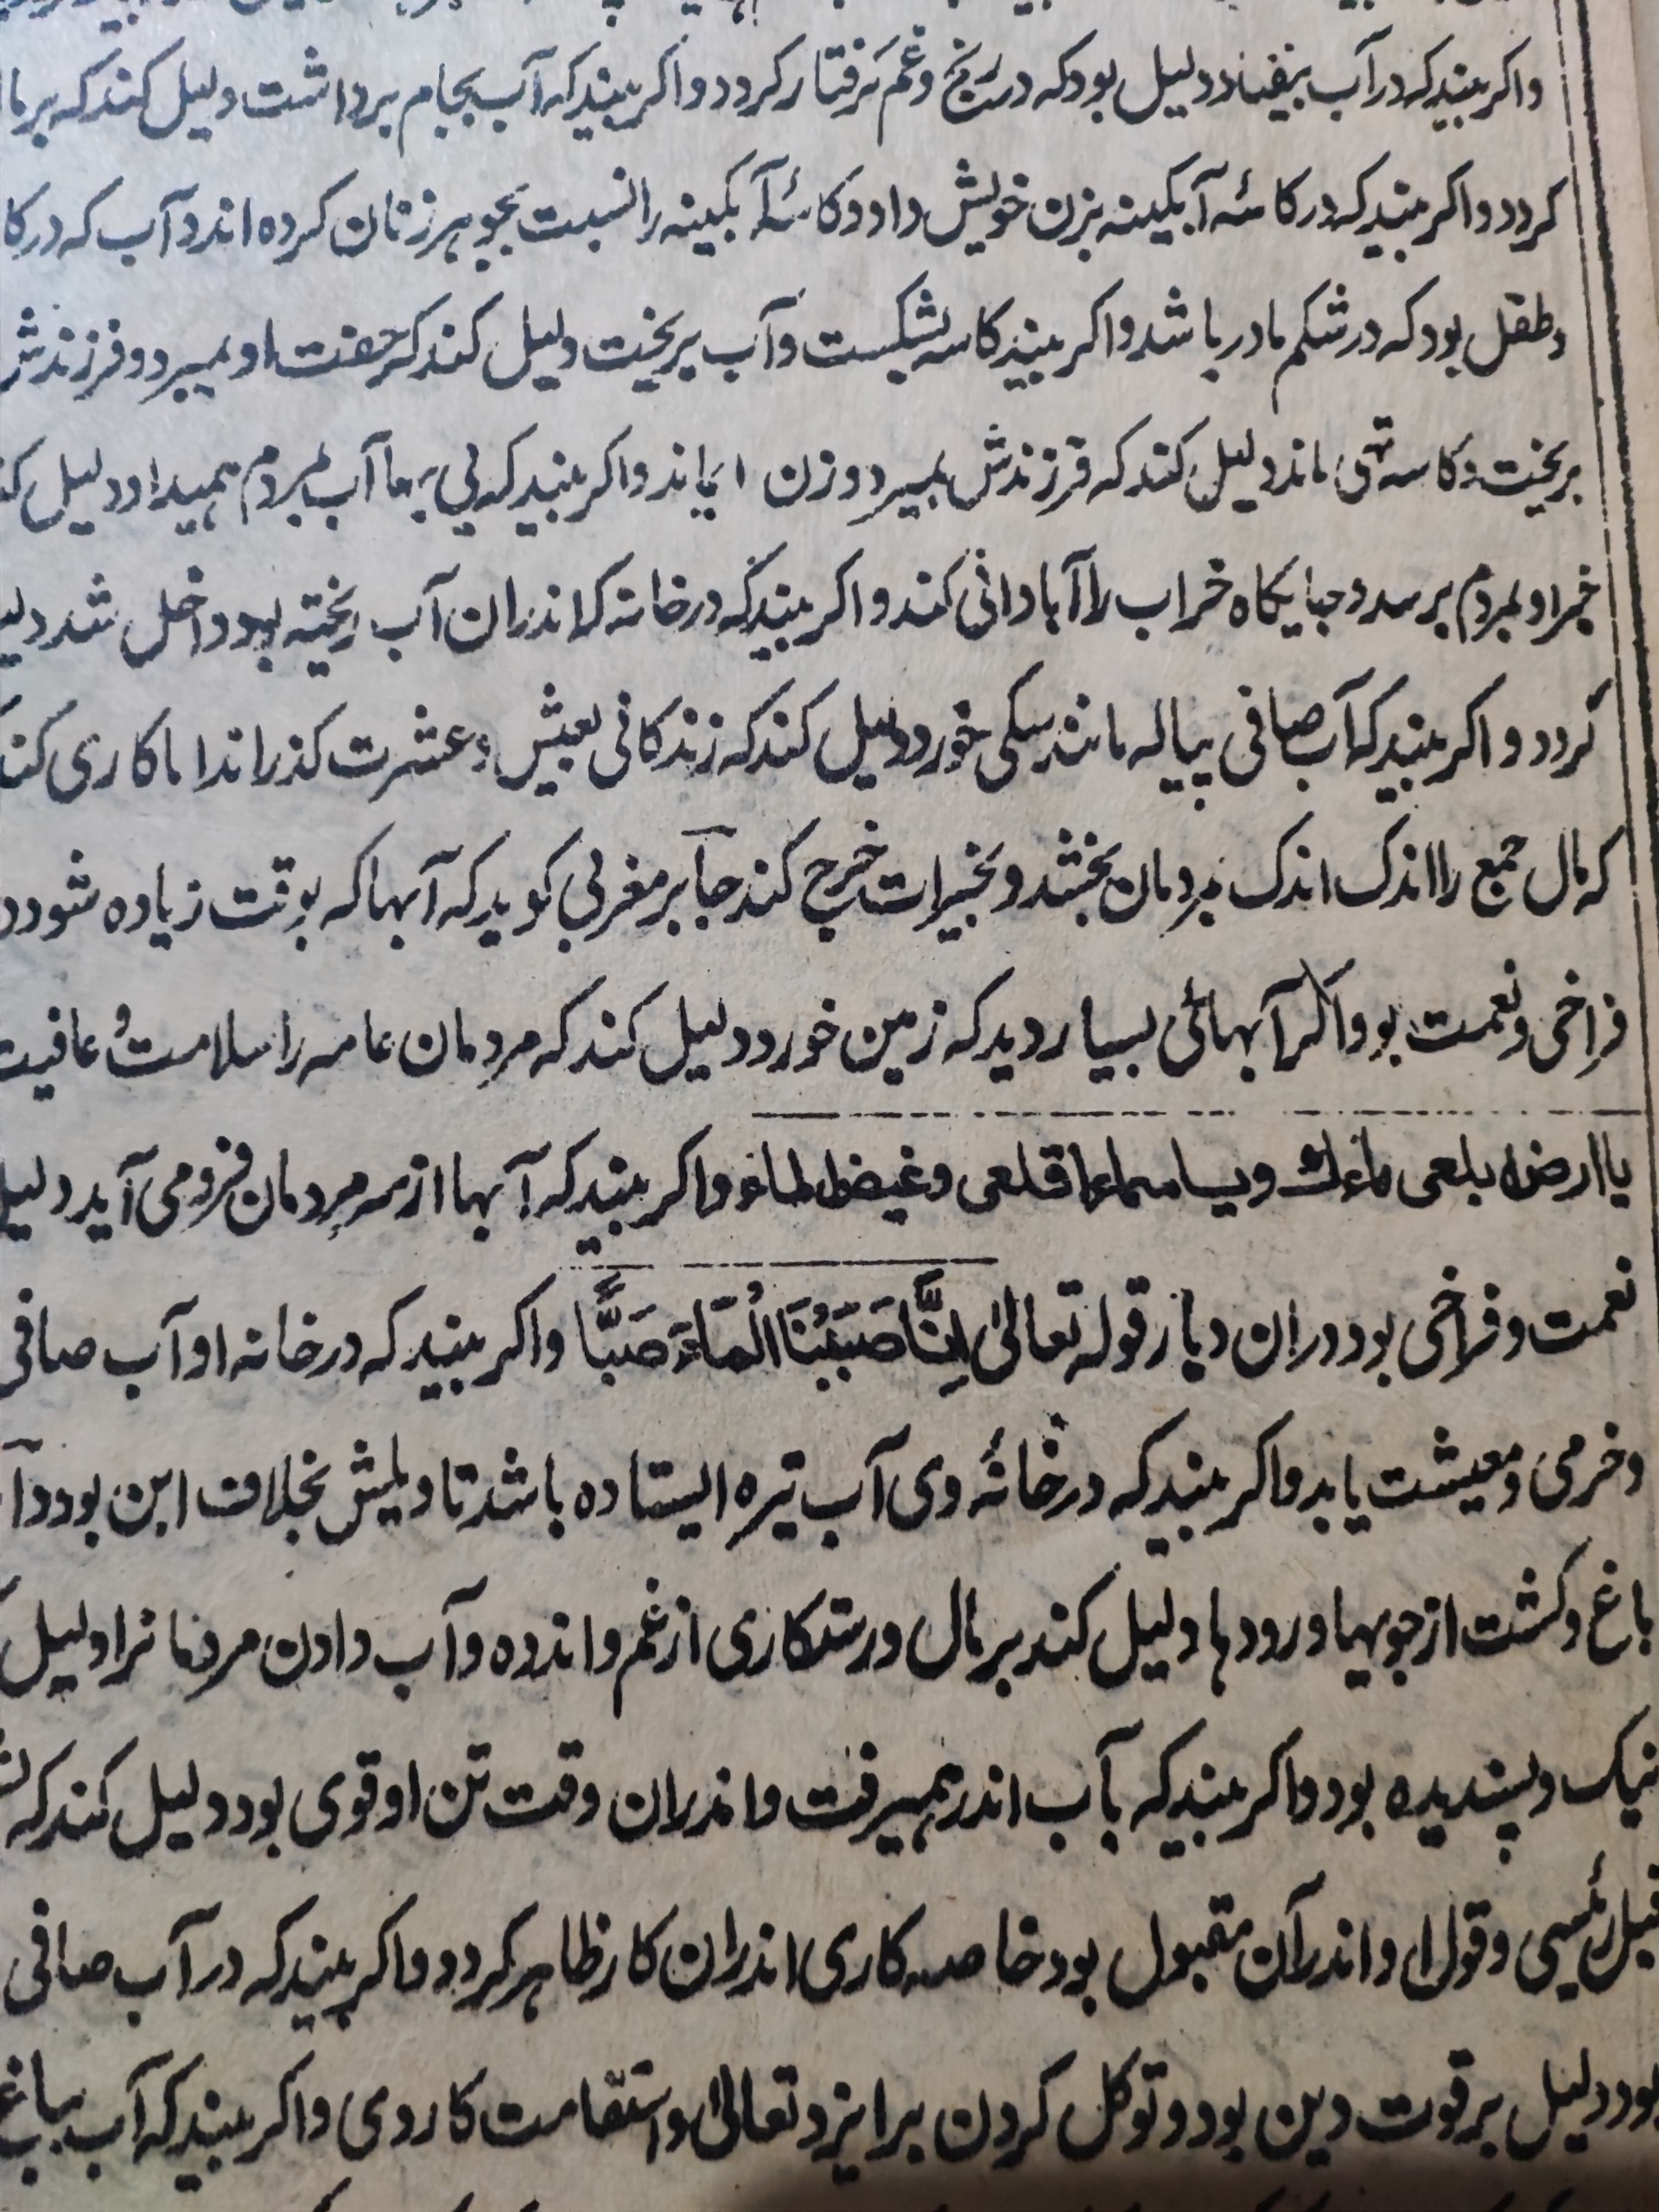 واکر بیند که در آب بیفتاد دلیل بود که در رنج و غم گرفتار کردد و اکر بیند که آب بجام برداشت دلیل کند که بر ما
کردد واکر بیند که در کاسۀ آبکینه بزن خویش داد و کاسۀ آبکینه را نسبت بجوهر زنان کرده اند و آب که در کا
و طفل بود که در شکم مادر باشد واکر بیند کاسه بشکست و آب بریخت دلیل کند که جفت او بمیرد و فرزندش
بریخت و کاسه تهی ماند دلیل کند که فرزندش بمیرد و زن بماند واکر بیند که بی بها آب بمردم همیداد دلیل کند
خیر او بمردم برسد و جایکاه خراب را آبادانی کند و اکر بیند که در خانه که اندران آب ریخته بود داخل شد دلیل
کردد و اکر بیند که آب صافی پیاله مانند سیکی خورد دلیل کند که زندکانی بعیش و عشرت کذراند اما کاری کند
که مال جمع را اندک اندک بمردمان بخشد و بخیرات خرج کند جابر مغربی کوید که آبها که بوقت زیاده شود د
فراخی و نعمت بود اکر آبهائی بسیار دید که زمین خورد دلیل کند که مردمان عامه را سلامت و عافیت
یا ارض ابلعی ماءک ویا سماء اقلعی وغیض الماء واکر بیند که آبها از سر مردمان فرو می آید دلیل
نعمت و فراخی بود دران دیار قوله تعالیٰ اِنَّا صَبَبْنَا الْمَاءَ صَبًّا واکر بیند که در خانه او آب صافی
و خرمی و معیشت یابد واکر بیند که در خانۀ وی آب تیره ایستاده باشد تاویلش بخلاف این بود و آ
باغ و کشت از جویها و رودها دلیل کند بر مال و رستکاری از غم و اندوه و آب دادن مردمانرا دلیل
نیک و پسندیده بود واکر بیند که بآب اندر همیرفت و اندران وقت تن او قوی بود دلیل کند که
رئیسی و قول او اندر آن مقبول بود خاصه کاری اندران کار ظاهر کردد واکر بیند که در آب صافی
بود دلیل بر قوت دین بود و توکل کردن بر ایزد تعالیٰ و استقامت کار وی واکر بیند که آب بباغ